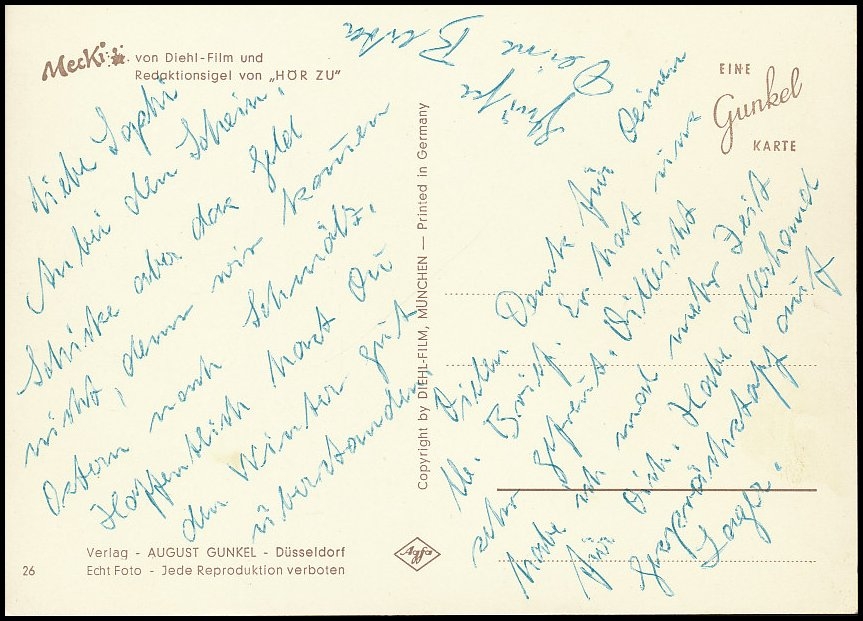 Mecki von Diehl-Film und
Redaktionsigel von „HÖR ZU"
EINE
Gunkel
KARTE
Liebe Sophi
Anbei den Schein,
Schicke aber das Geld
nicht, denn wir kommen
Ostern nach Schmalz.
Hoffentlich hast Du
den Winter gut
überstanden,
Copyright by DIEHL-FILM, MÜNCHEN — Printed in Germany
Vielen Dank für Deinen
lb. Brief. Er hat uns
sehr gefreut. Villeicht
habe ich mal mehr Zeit
für Dich. Habe allerhand
gesprächstoff auf
Lager.
Grüße
Deine Berta
Verlag - AUGUST GUNKEL - Düsseldorf
Echt Foto - Jede Reproduktion verboten
26
Agfa